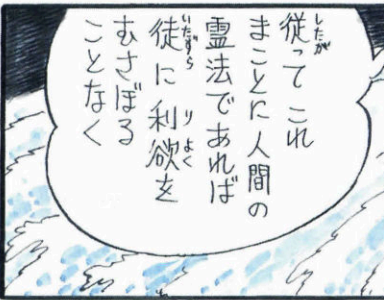 従ってこれ
まことに人間の
霊法であれば
徒に利欲を
むさぼる
ことなく